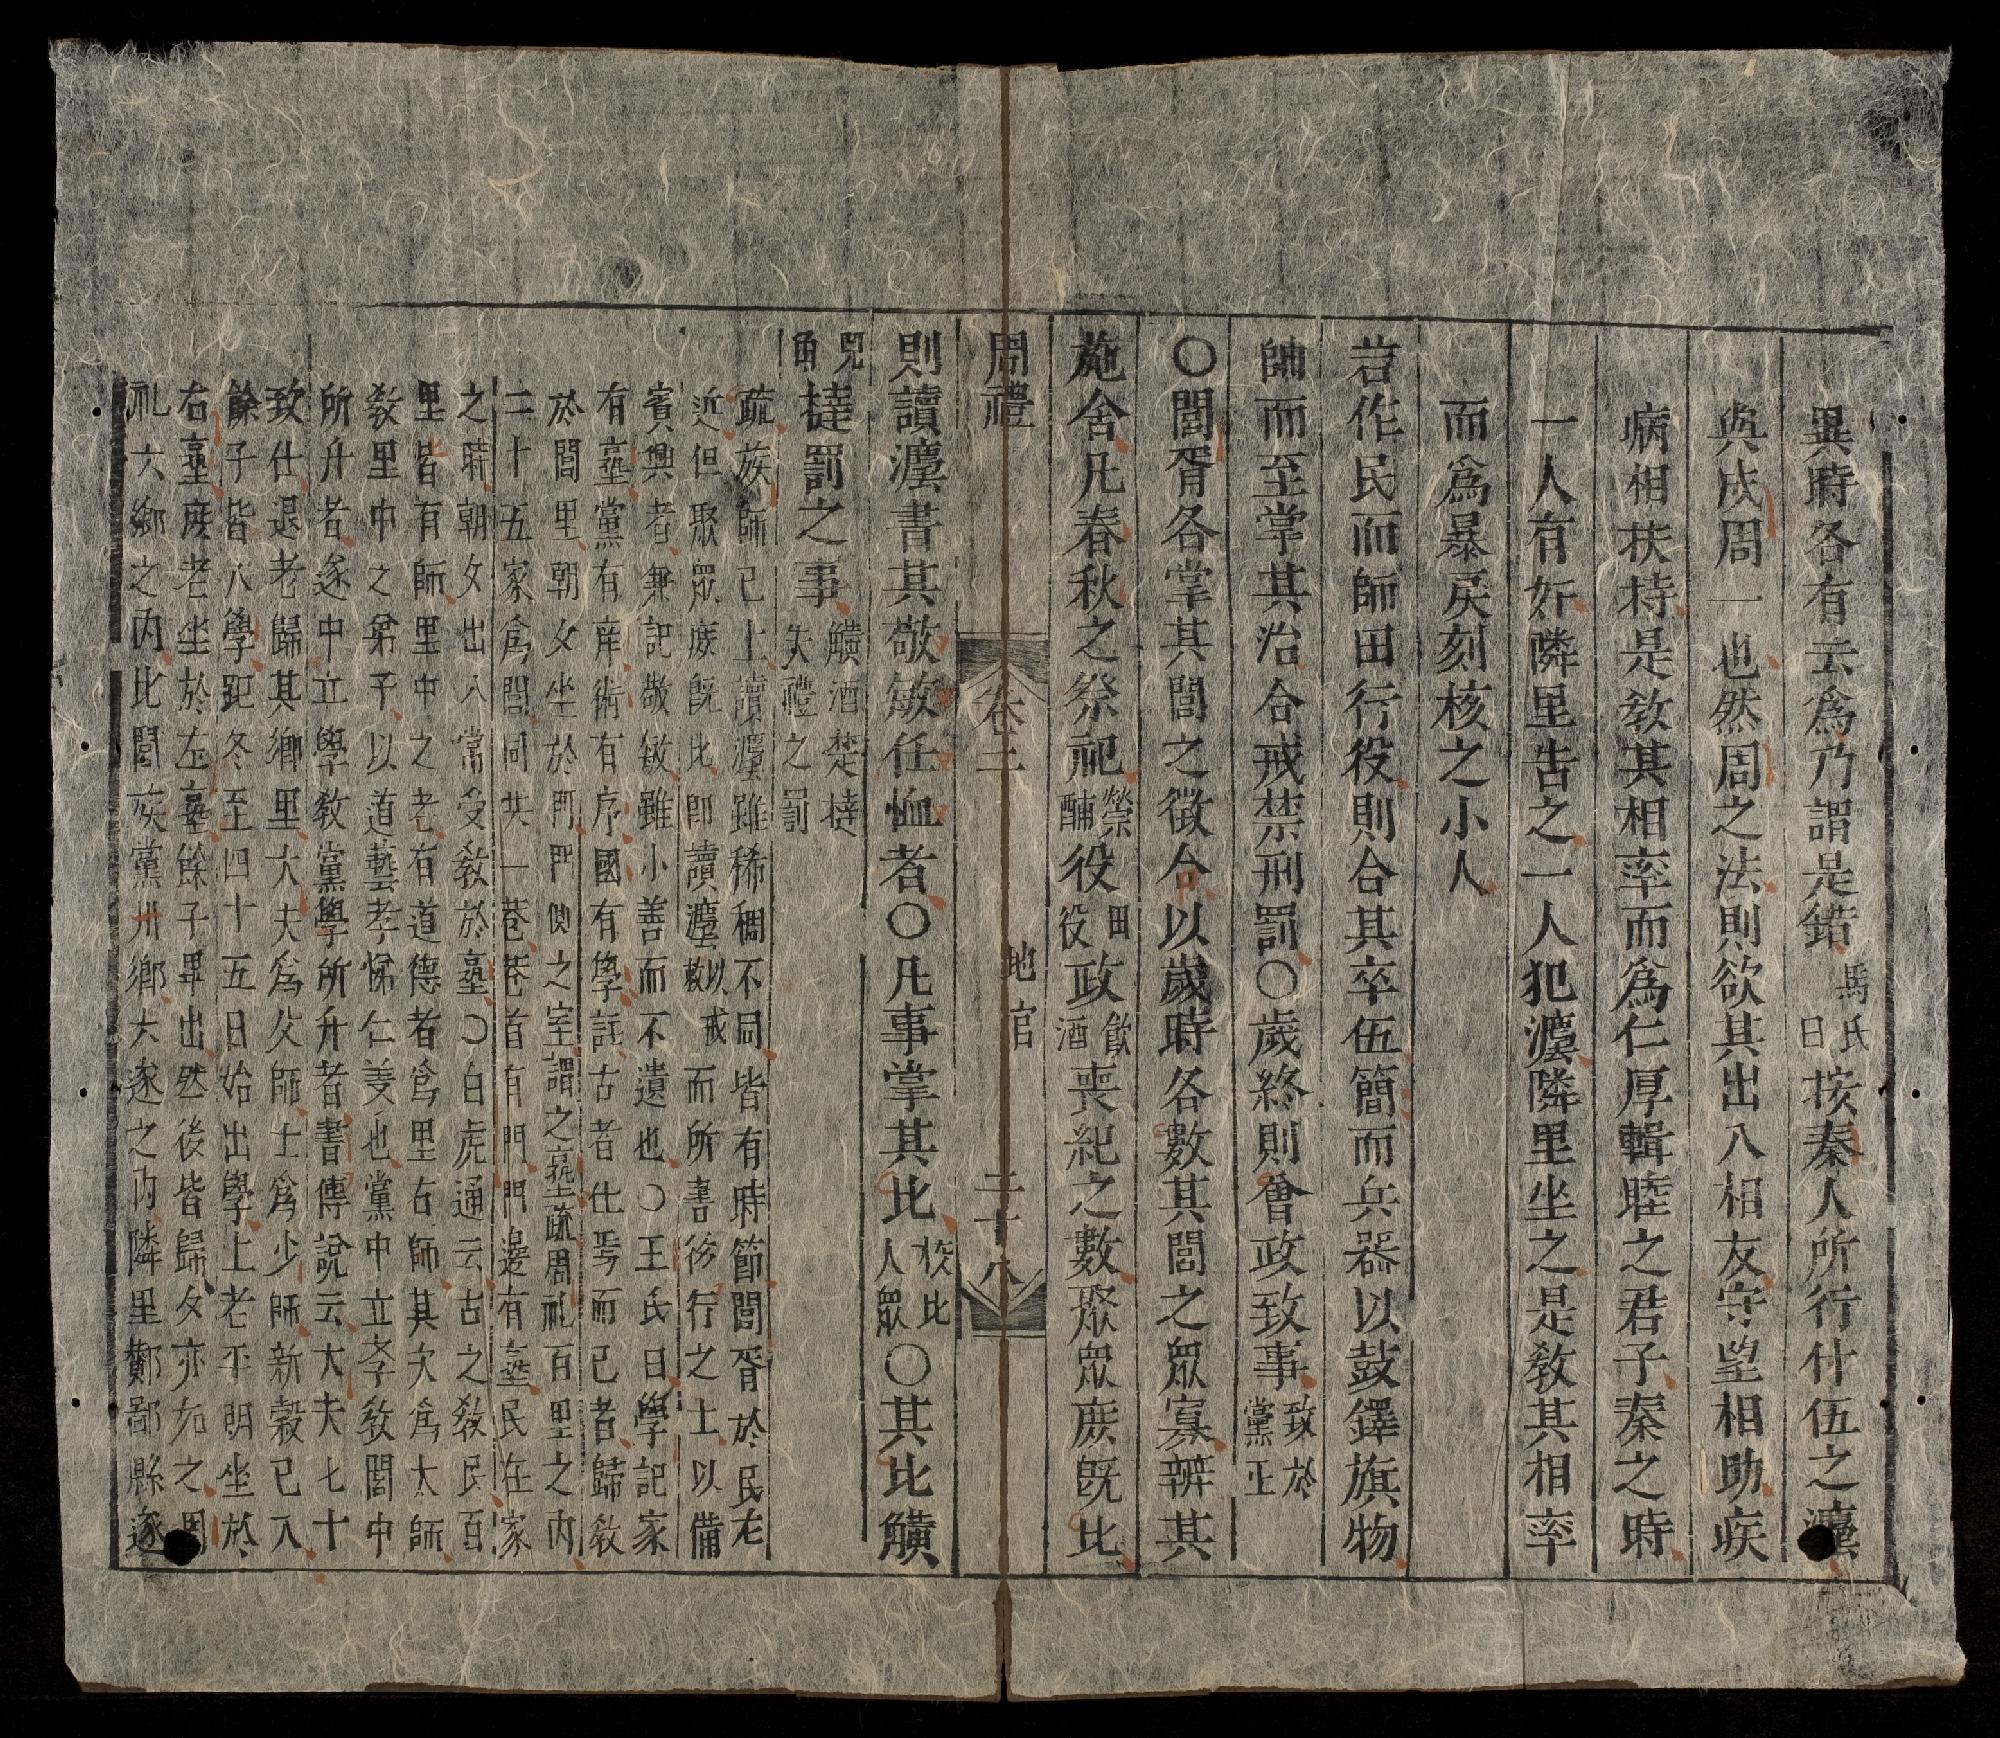 異時各有云爲乃謂是錯馮氏曰按秦人所行什伍之灋
與成周一也然周之法則欲其出入相友守望相助疾
病相扶持是教其相率而爲仁厚輯睦之君子秦之時
一人有奸隣里告之一人犯灋隣里坐之是教其相率
而爲暴戾刻核之小人
若作民而師田行役則合其卒伍簡而兵器以鼓鐸旗物
帥而至掌其治令戒禁刑罰〇歲終則會政致事致於黨正
〇閭胥各掌其閭之徵令以歲時各數其閭之眾寡辨其
施舍凡春秋之祭祀禜酺役田役政飲酒喪紀之數聚眾庶既比
周禮 卷三 地官 二十八
則讀灋書其敬敏任恤者〇凡事掌其比校比人眾〇其比觵
兕角撻罰之事觵酒楚撻失禮之罰
疏族師已上讀灋雖稀稠不同皆有時節閭胥於民尤
近但聚眾庶既比卽讀灋以敕戒而所書後行之士以備
賓興者兼記敬敏雖小善而不遺也〇王氏曰學記家
有塾黨有庠術有序國有學註古者仕焉而已者歸教
於閭里朝夕坐於門門側之室謂之塾疏周禮百里之內
二十五家爲閭同共一巷巷首有門門邊有塾民在家
之時朝夕出入常受教於塾〇白虎通云古之教民百
里皆有師里中之老有道德者爲里右師其次爲左師
教里中之弟子以道藝孝悌仁義也黨中立李教閭中
所升者遂中立學教黨學所升者書傳說云大夫七十
致仕退老歸其鄉里大夫爲父師士爲少師新穀已入
餘子皆入學距冬至四十五日始出學上老平明坐於
右塾庶老坐於左塾餘子畢出然後皆歸夕亦如之周
禮六鄉之內比閭族黨州鄉六遂之內隣里酇鄙縣遂